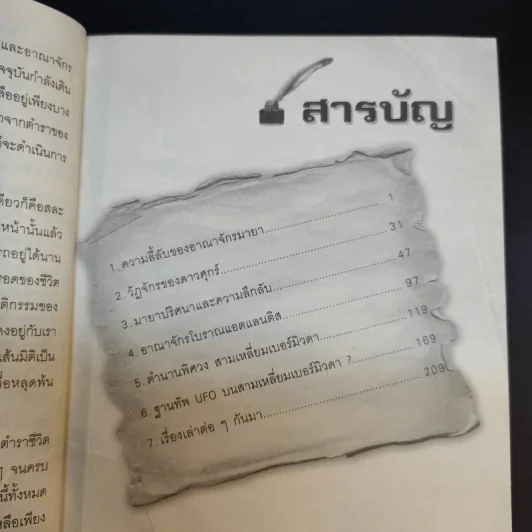 และอาณาจักร
จจุบันกำลังเดิน
ลืออยู่เพียงบาง
าจากตำราของ
จะดำเนินการ
เดียวก็คือสละ
หน้านั้นแล้ว
รถอยู่ได้นาน
รอดของชีวิต
ติกรรมของ
คงอยู่กับเรา
เส้นมิติเป็น
อหลุดพ้น
ตำราชีวิต
ๆ จนครบ
นี้ทั้งหมด
หลือเพียง
สารบัญ
1. ความลี้ลับของอาณาจักรมายา 1
2. วัฏจักรของดาวศุกร์ 31
3. มายาปริศนาและความลึกลับ 47
4. อาณาจักรโบราณแอตแลนติส 97
5. ตำนานพิศวง สามเหลี่ยมเบอร์มิวดา 119
6. ฐานทัพ UFO บนสามเหลี่ยมเบอร์มิวดา ? 169
7. เรื่องเล่าต่อ ๆ กันมา 209